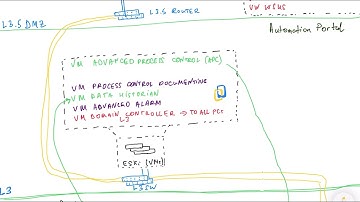 L3.5 ROUTER
VM WSUS
L3.5 DMZ
Automation Portal
VM ADVANCED PROCESS CONTROL (APC)
VM PROCESS CONTROL DOCUMENTING
VM DATA HISTORIAN
VM ADVANCED ALARM
VM DOMAIN CONTROLLER → TO ALL PCs
L3